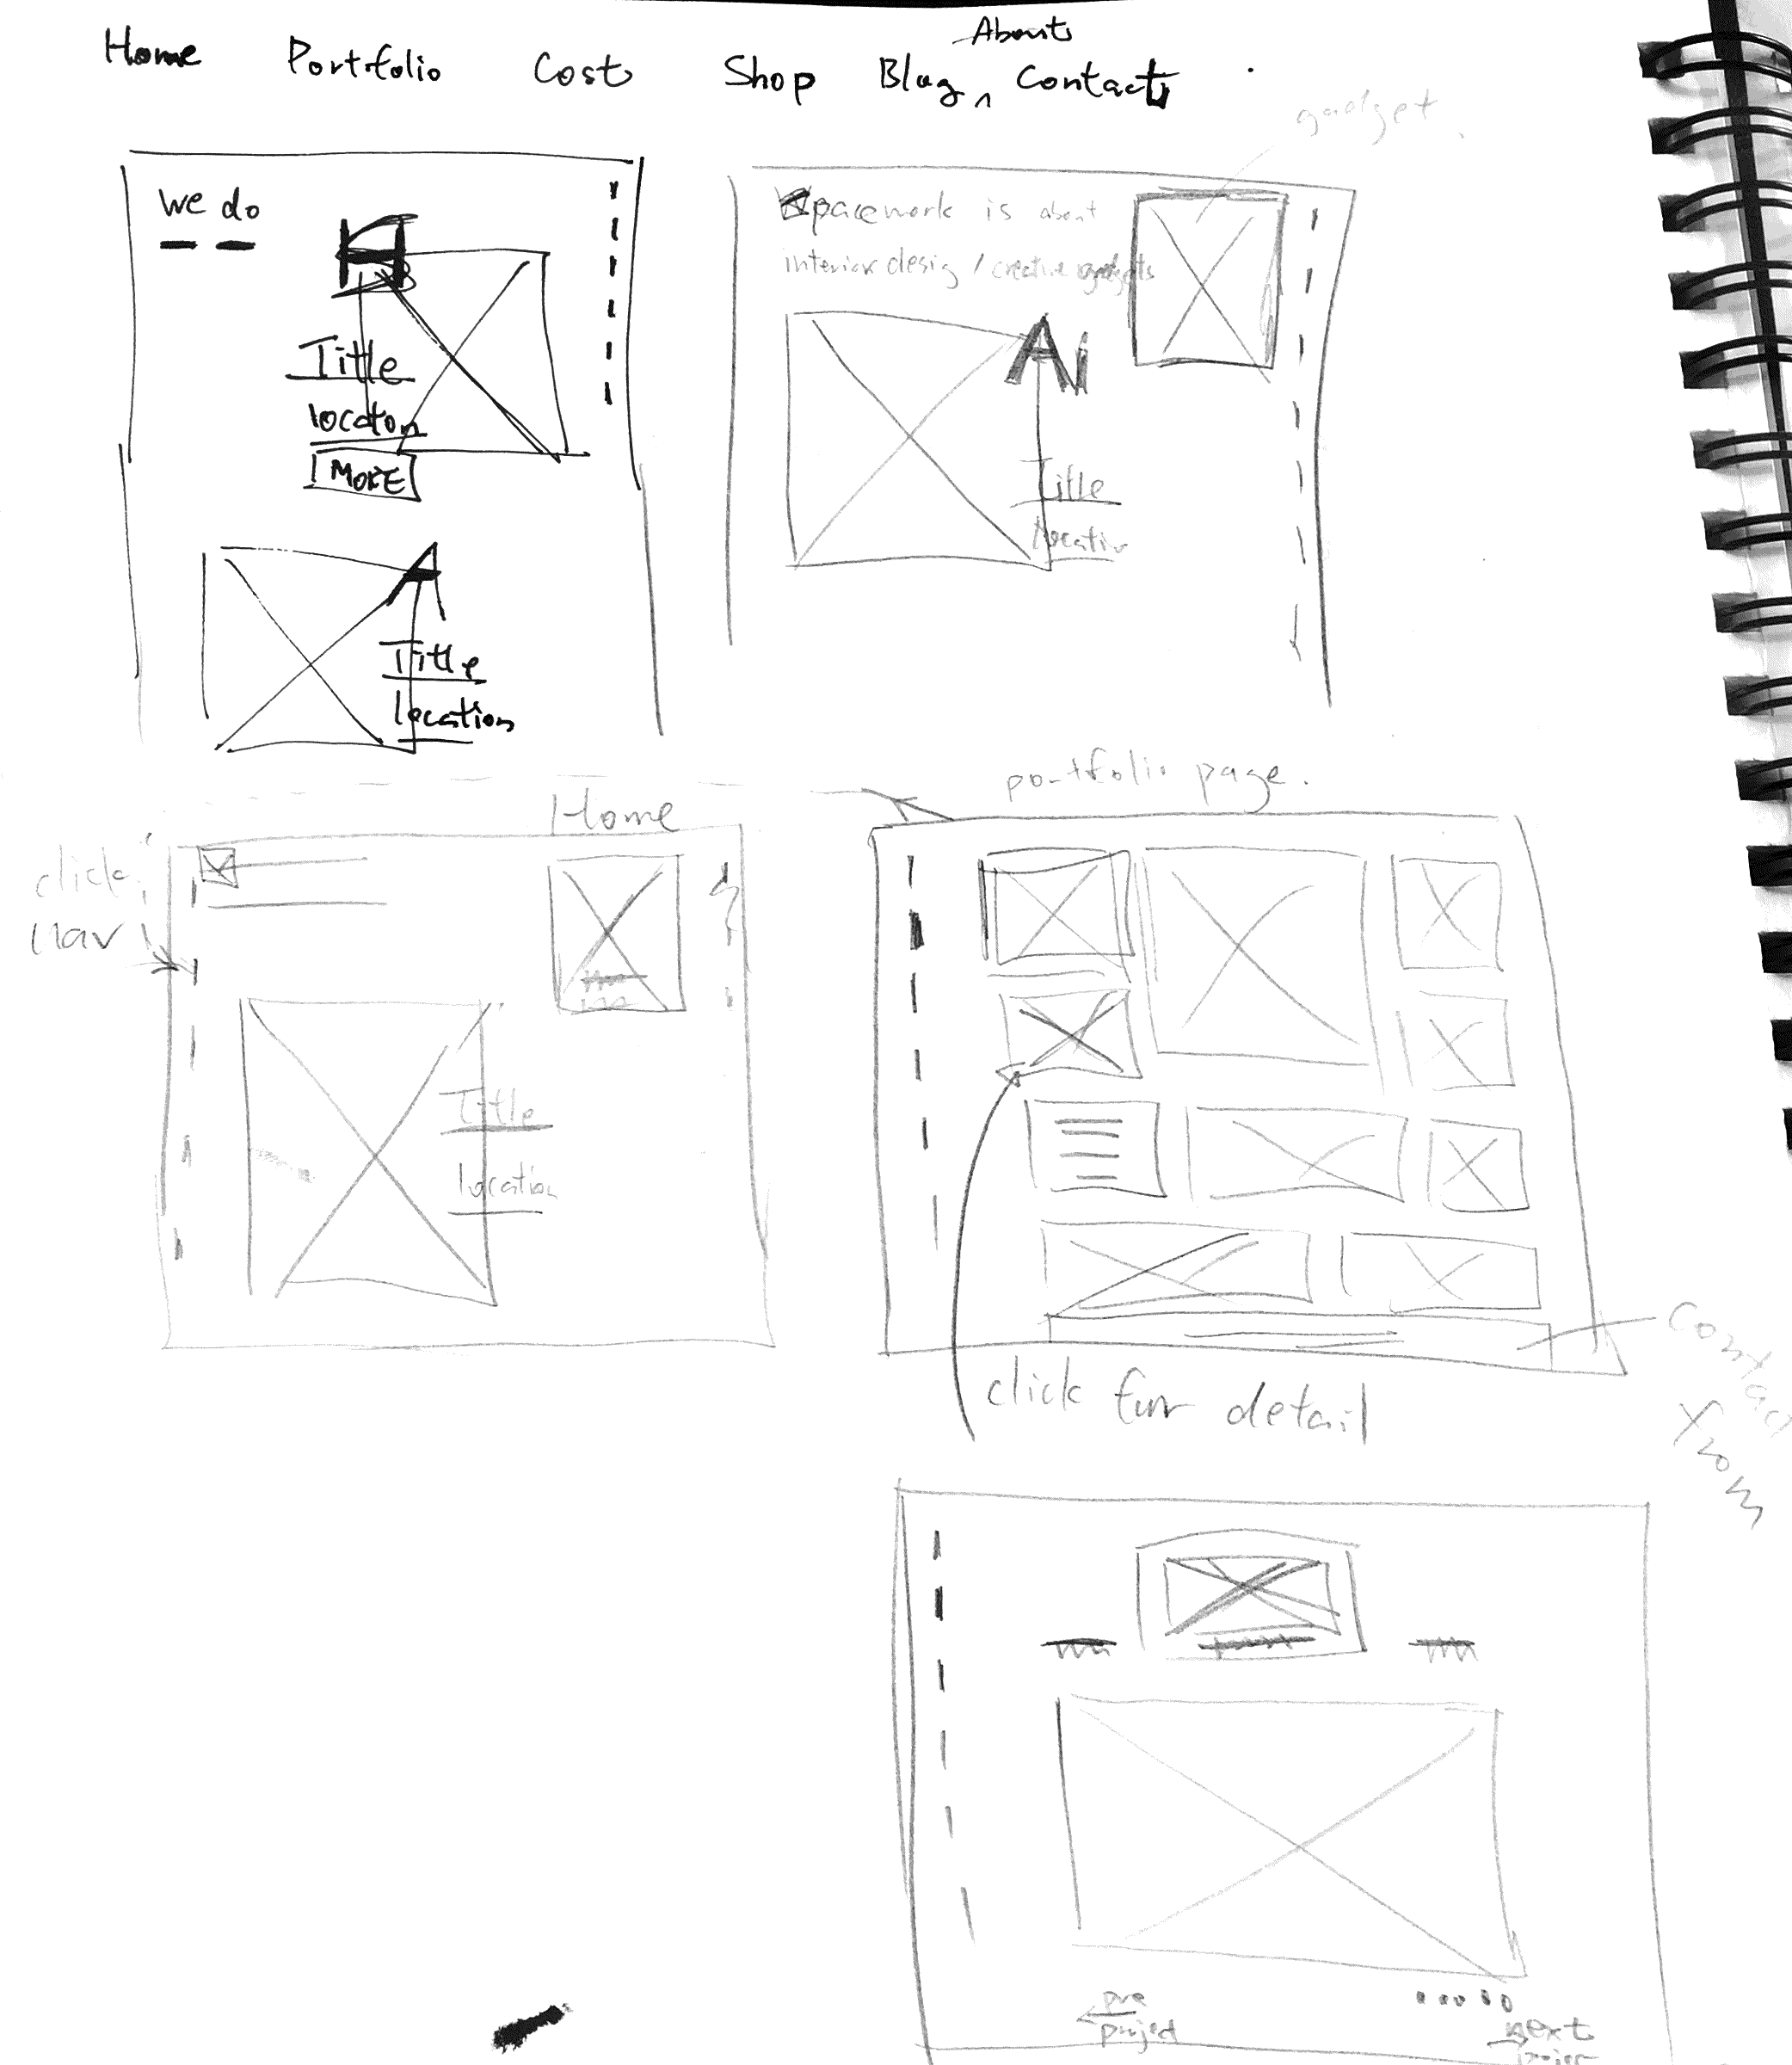 About
Home Portfolio Cost Shop Blog ^ Contact
gadget.
we do
Title
location
MORE
A
Title
location
Spacework is about
interior desig / creative gadgets
A
Title
location
Home
click
nav
Title
location
portfolio page.
click for detail
Contact
from
pre
project
next